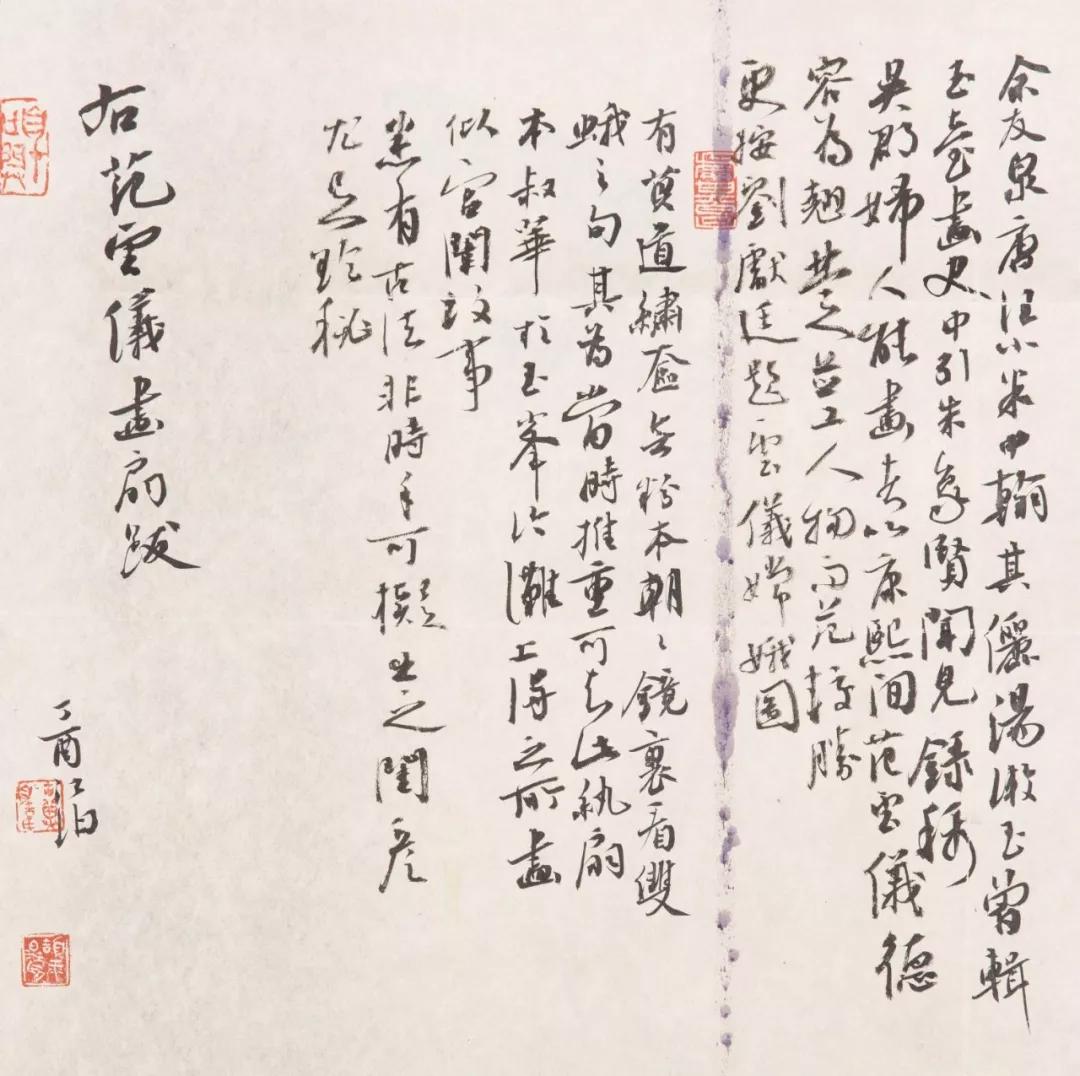 余友泉唐汪小米中翰其儷湯漱玉曾輯
玉臺畫史中引朱象賢聞見錄稱
吳郡婦人能畫者以康熙間范雪儀德
容為翹楚之並工人物而范較勝
更按劉獻廷題雲儀嫦娥圖
有莫道繡奩無粉本朝〻鏡裏看雙
蛾之句其為當時推重可知此紈扇
本叔華於玉峯ㄧ灘上得之所畫
似宮闈故事
悉有古法非時手可擬也之閨彥
尤足珍秘
右范雪儀畫扇跋
丁酉